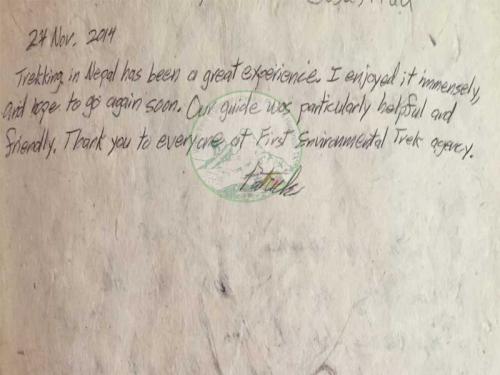 27 Nov. 2014
Trekking in Nepal has been a great experience. I enjoyed it immensely,
and hope to go again soon. Our guide was particularly helpful and
friendly. Thank you to everyone at First Environmental Trek agency.
Patrick